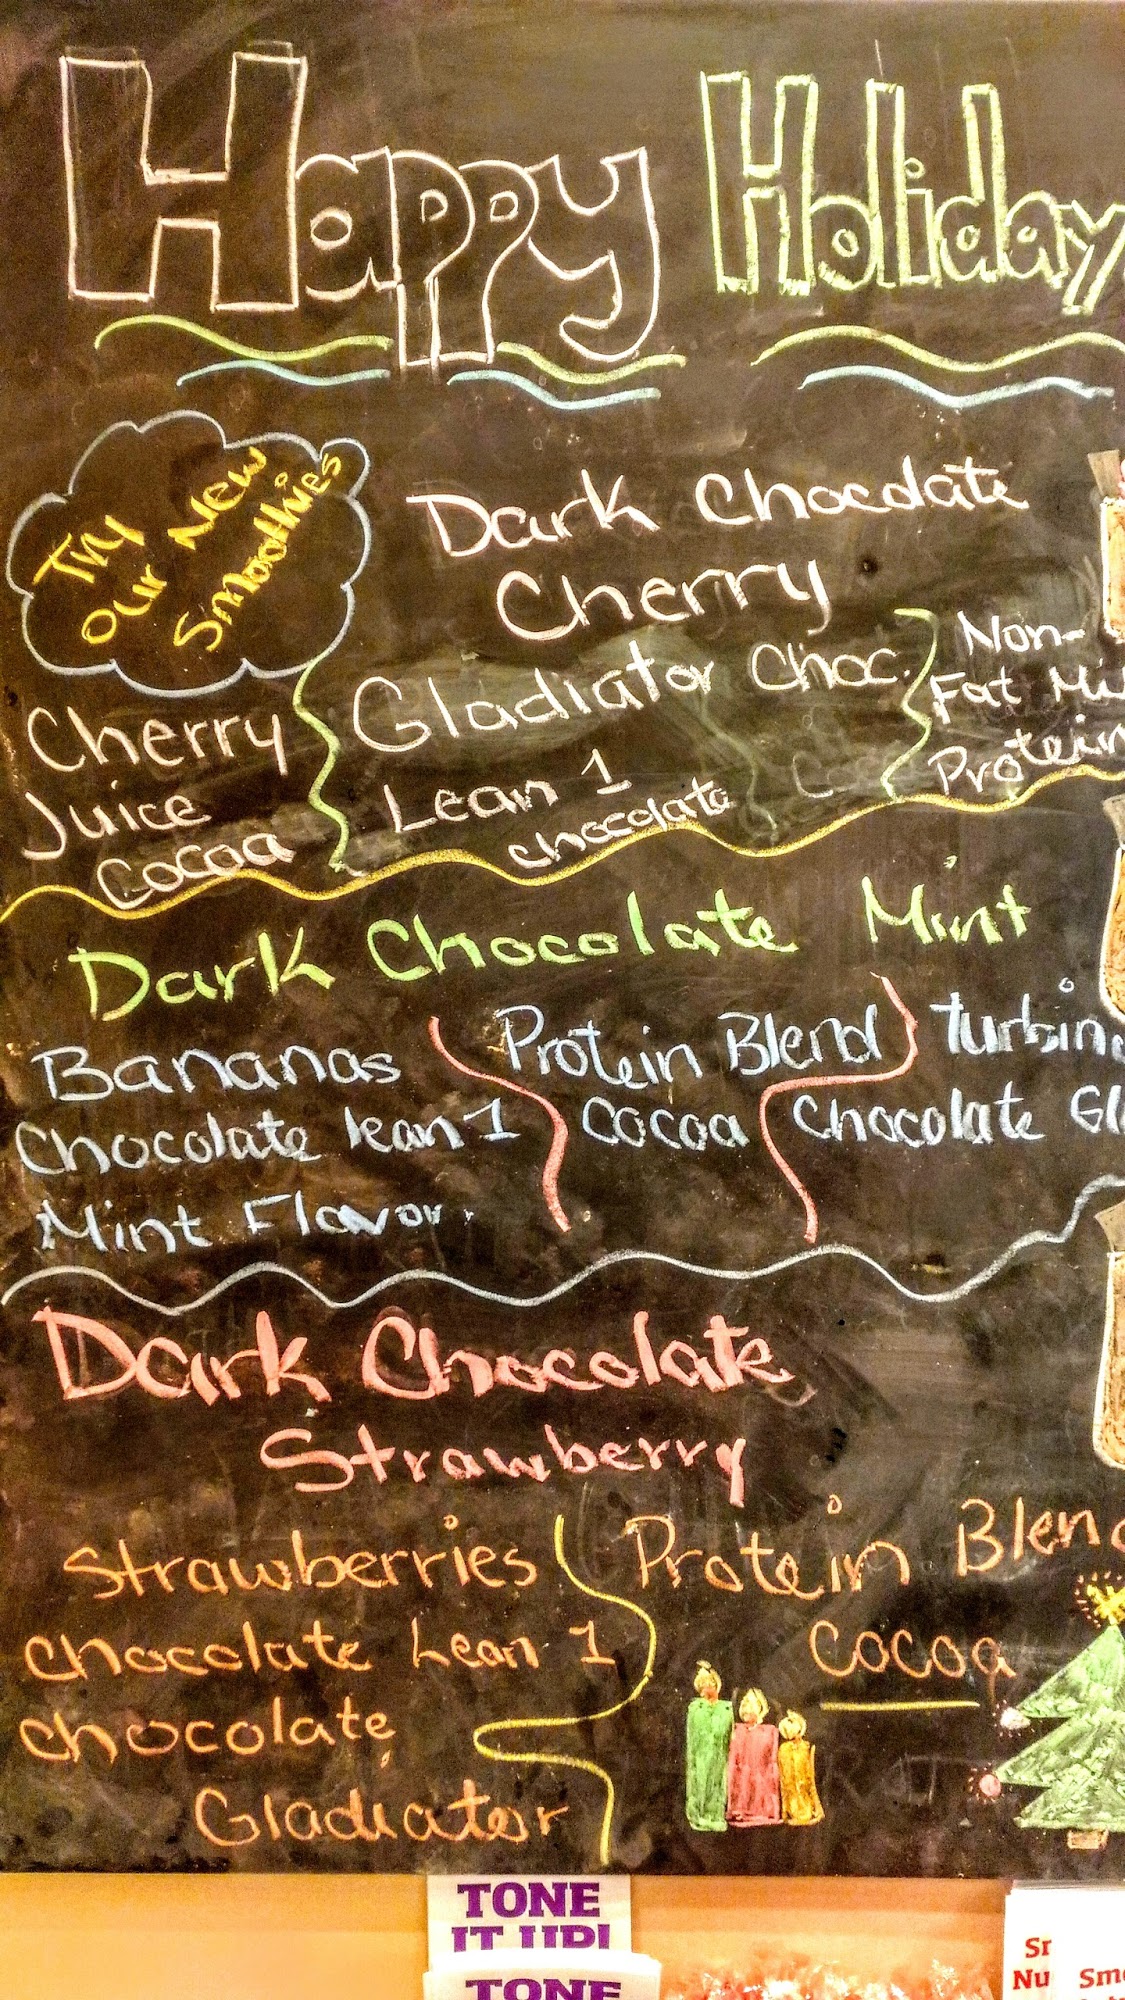 Happy Holiday
Try
our New
Smoothies
Dark Chocolate
Cherry
Cherry
Juice
Cocoa
Gladiator Choc.
Lean 1
chocolate
Non-
Fat Mi
Protein
Dark Chocolate Mint
Bananas
Chocolate lean 1
Mint Flavor.
Protein Blend
Cocoa
turbin
Chocolate Gl
Dark Chocolate
Strawberry
Strawberries
chocolate Lean 1
chocolate
Gladiator
Protein Blend
cocoa
TONE
IT UP!
TONE
Sr
Nu
Smo